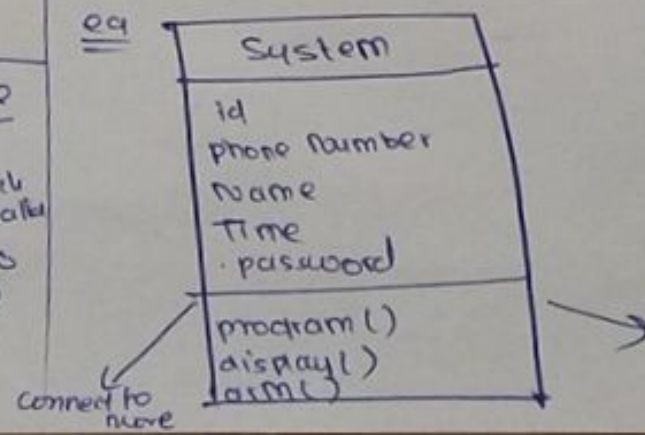 eg
System
id
phone number
Name
Time
. password
program()
display()
arm()
connect to